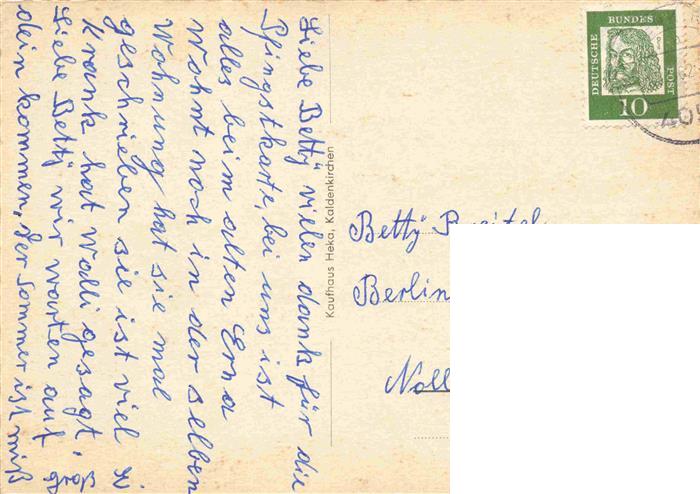 Liebe Betty vielen dank für die
Pfingstkarte, bei uns ist
alles beim alten Erna
Wohnt noch in der selben
Wohnung hat sie mal
geschrieben sie ist viel
Krank hat Walli gesagt,
Liebe Betty wir warten auf
dein kommen, der Sommer ist miß
Kaufhaus Heka, Kaldenkirchen
DEUTSCHE
BUNDES
POST
10
405
Betty
Berlin
Noll